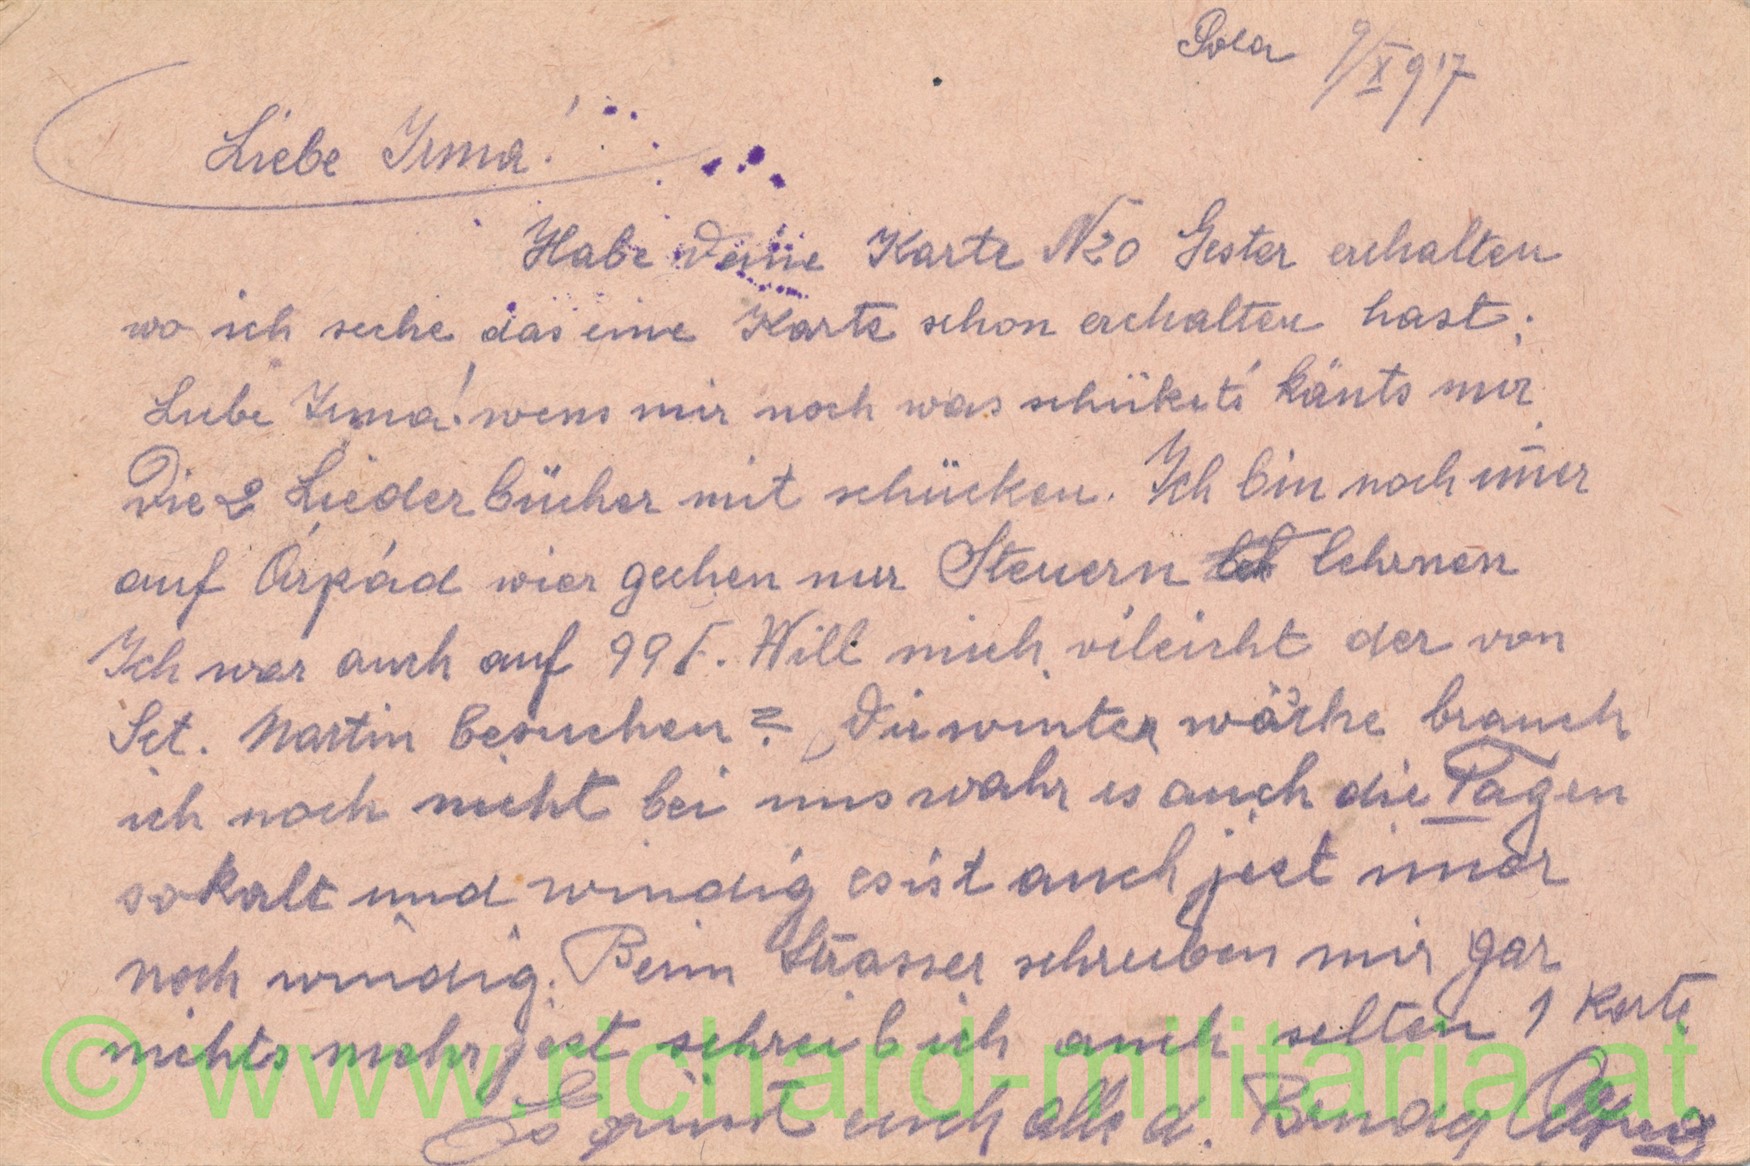 Pola 9/X 917
Liebe Irma!
Habe deine Karte No Gester erhalten
wo ich seche das eine Karte schon erchalten hast.
Liebe Irma! wens mir noch was schükts känts mir
Die 2 Lieder bücher mit schücken. Ich bin noch im̄er
auf Árpád wier gechen nur Steuern lehrnen
Ich war auch auf 99 f. Will mich vileicht der von
Sct. Martin besuchen? Die winter wäche brauch
ich noch nicht bei uns wahr es auch die Tagen
so kalt und windig es ist auch jezt imer
noch windig. Beim Strasser schreiben mir gar
nichts mehr jezt schreib ich auch selten 1 Karte
Es grüst euch alle d.
© www.richard-militaria.at